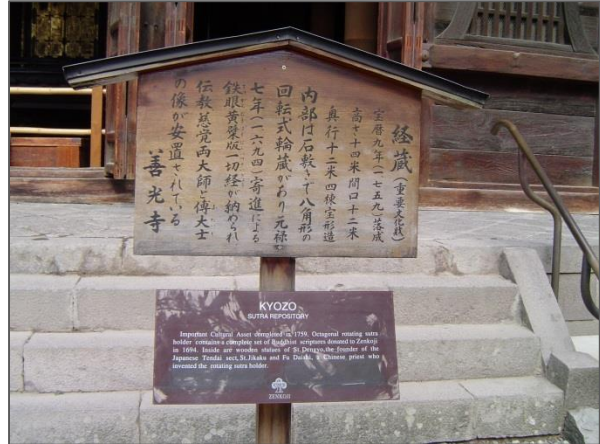 経蔵(重要文化財)
宝暦九年(一七五九)落成
高さ十四米間口十二米
奥行十二米四棟宝形造
内部は石敷きで八角形の
回転式輪蔵があり元禄
七年(一六九四)寄進による
鉄眼黄檗版一切経が納められ
伝教慈覚両大師と傅大士
の像が安置されている
善光寺
KYOZO
SUTRA REPOSITORY
Important Cultural Asset completed in 1759. Octagonal rotating sutra
holder contains a complete set of Buddhist scriptures donated to Zenkoji
in 1694. Inside are wooden statues of St.Dengyo, the founder of the
Japanese Tendai sect, St.Jikaku and Fu Daishi, a Chinese priest who
invented the rotating sutra holder.
ZENKOJI